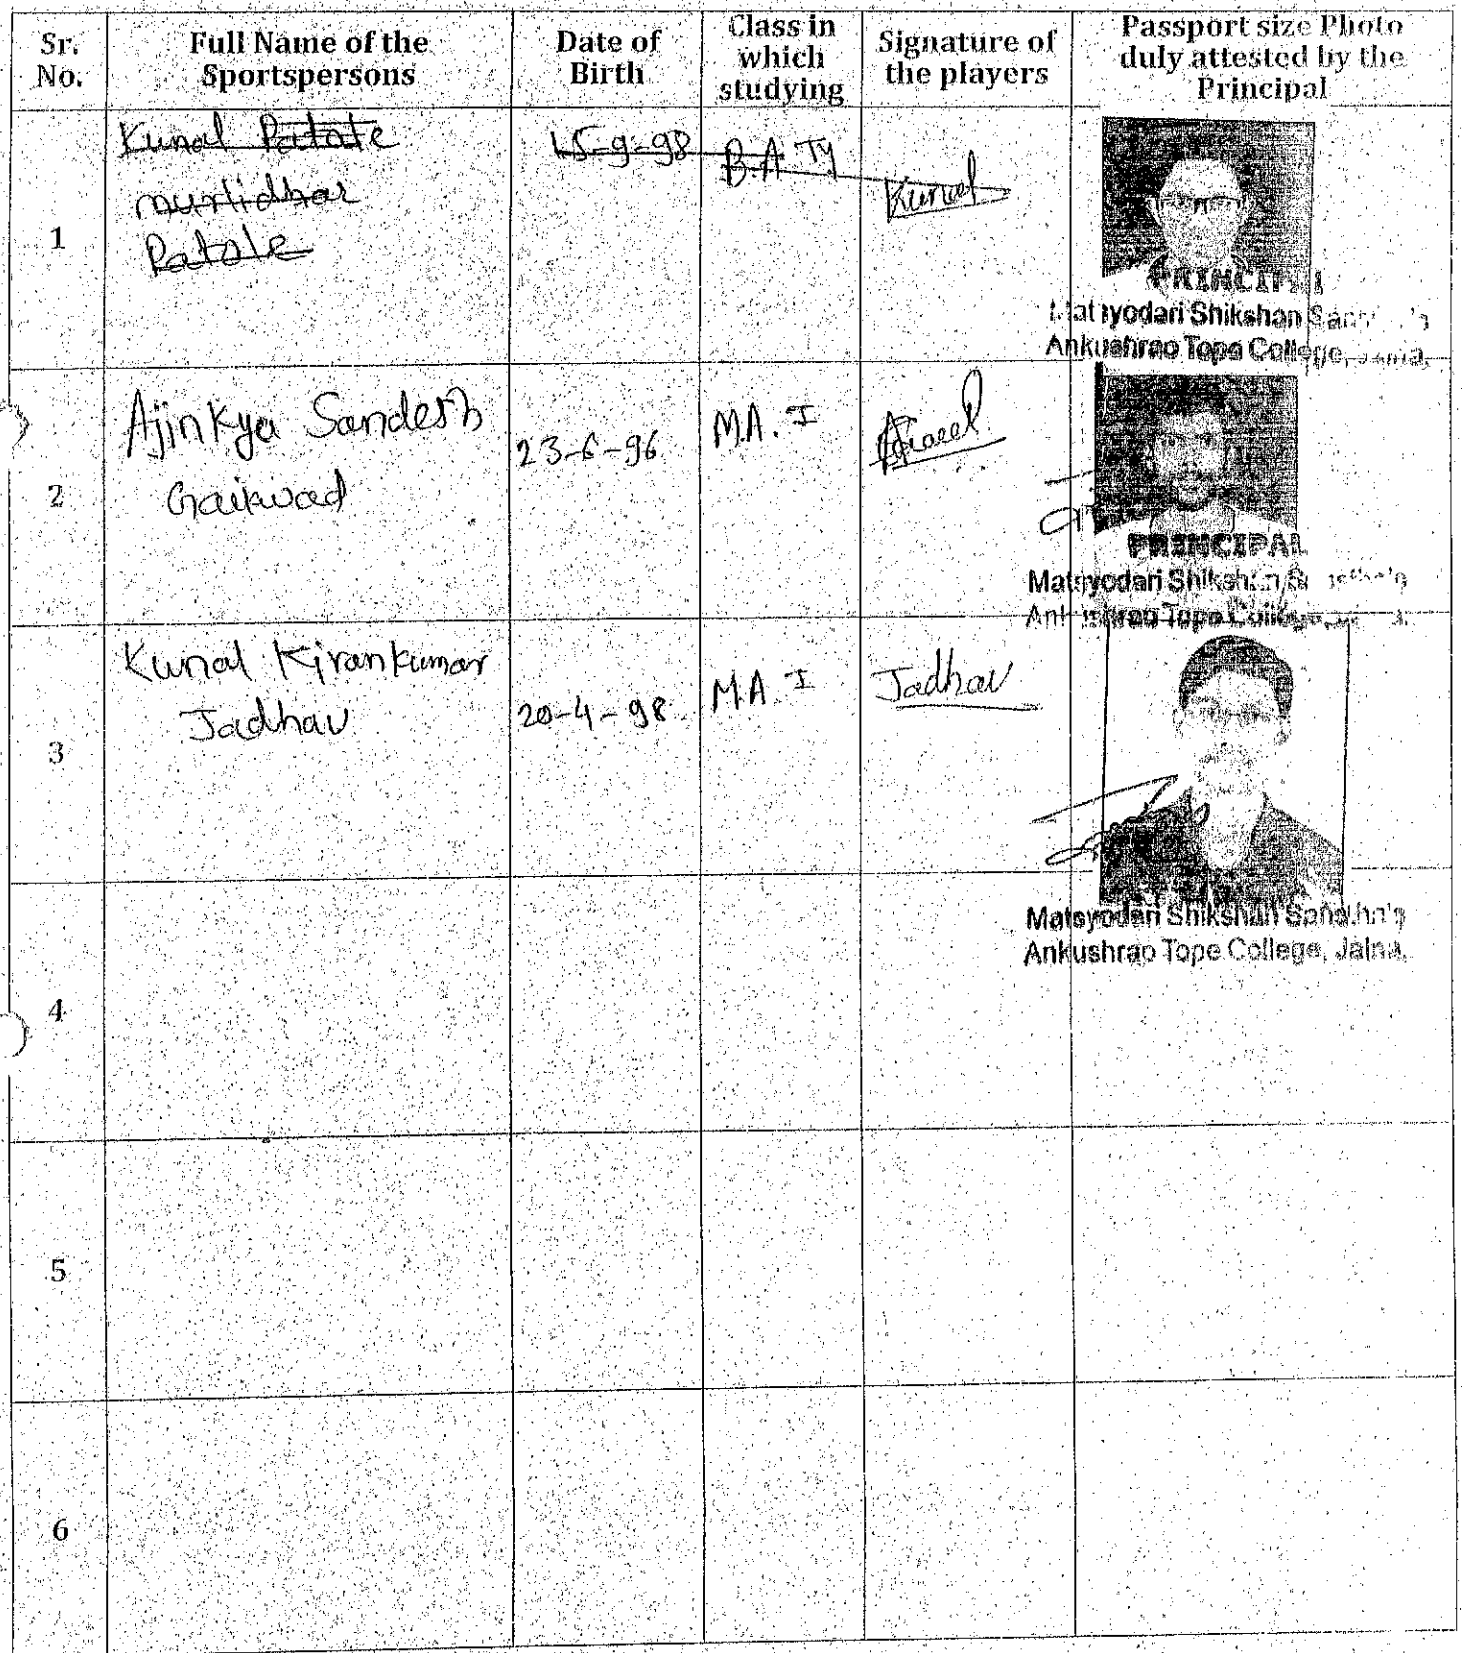 Sr. No.
Full Name of the Sportspersons
Date of Birth
Class in which studying
Signature of the players
Passport size Photo duly attested by the Principal
1
Kunal Patole
murlidhar
Patole
15-9-98
B.A TY
Kunal
PRINCIPAL
Matsyodari Shikshan
Ankushrao Tope College, Jalna.
2
Ajinkya Sandesh
Gaikwad
23-6-96
M.A. I
PRINCIPAL
Matsyodari Shikshan
Ankushrao Tope College,
3
Kunal Kirankumar
Jadhav
20-4-98
M.A I
Jadhav
Matsyodari Shikshan Sanstha's
Ankushrao Tope College, Jalna.
4
5
6